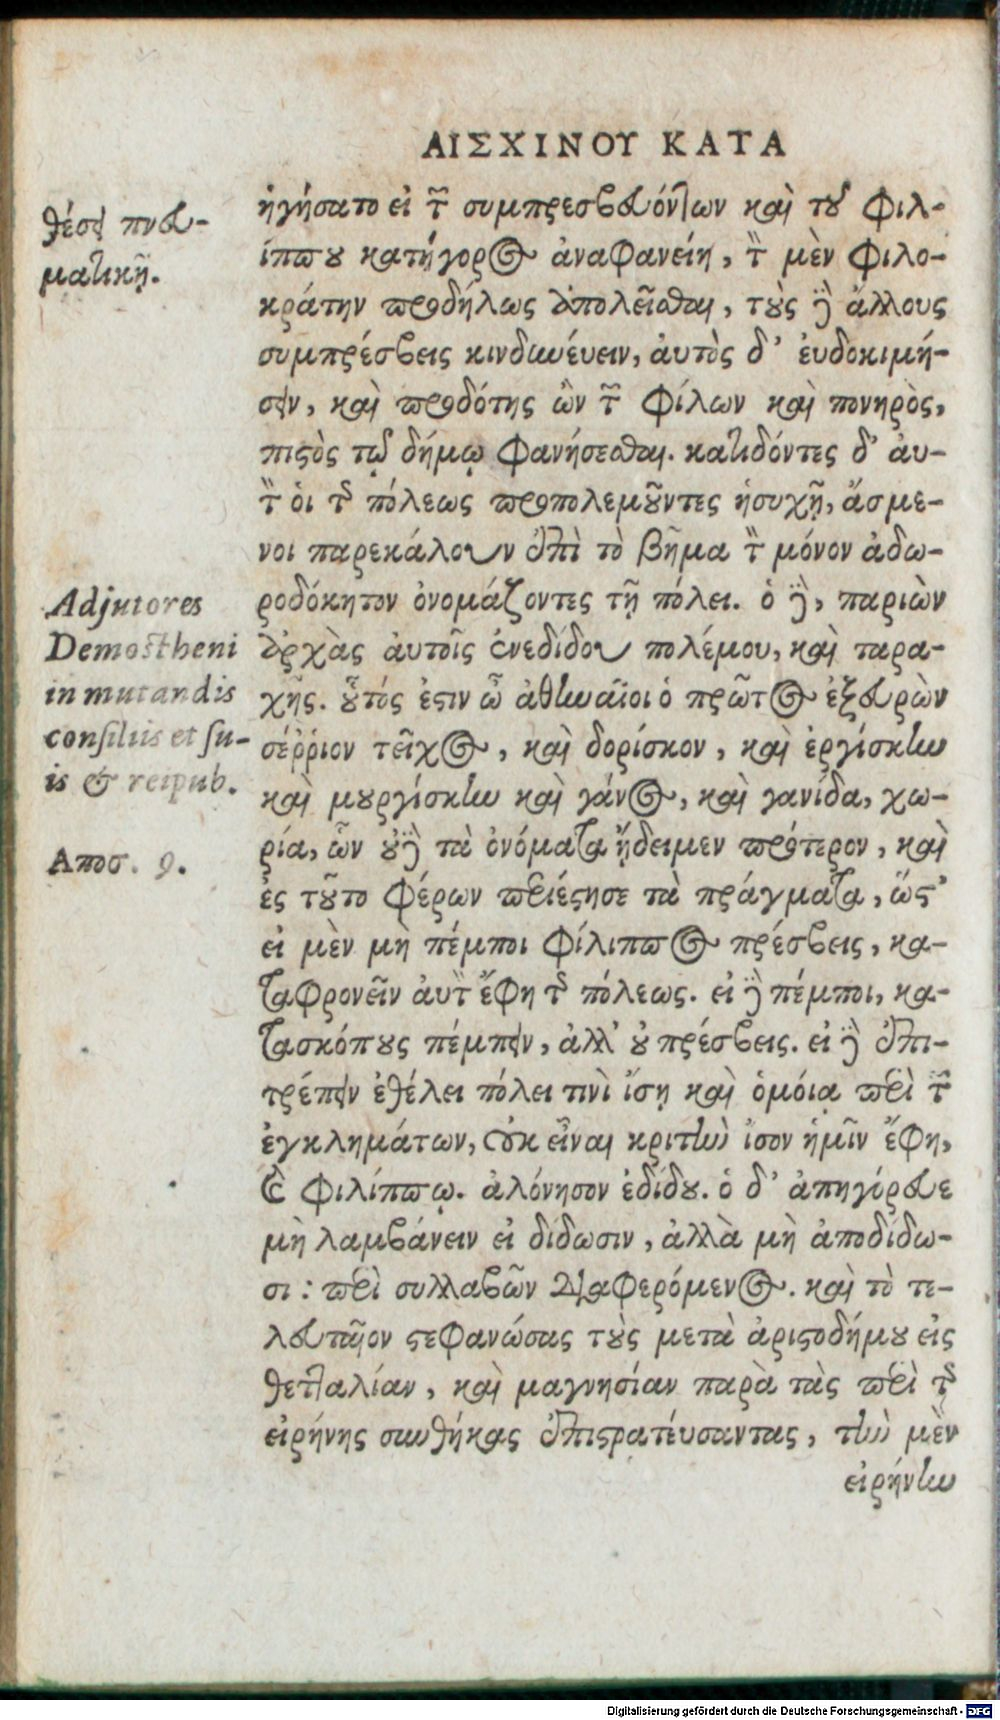 ΑΙΣΧΙΝΟΥ ΚΑΤΑ
ἡγήσατο εἰ τῶν συμπρεσβευόντων καὶ τοῦ Φιλ-
ίππου κατήγορος ἀναφανείη, τὸν μὲν Φιλο-
κράτην προδήλως ἀπολεῖσθαι, τοὺς δὲ ἄλλους
συμπρέσβεις κινδυνεύειν, ἀυτὸς δ' ἐυδοκιμή-
σειν, καὶ προδότης ὢν τῶν Φίλων καὶ πονηρὸς,
πιστὸς τῷ δήμῳ Φανήσεσθαι. κατιδόντες δ' ἀυ-
τὸν ὁι τῆς πόλεως προπολεμοῦντες ἡσυχῇ, ἄσμε-
νοι παρεκάλουν ἐπὶ τὸ βῆμα τὸν μόνον ἀδω-
ροδόκητον ὀνομάζοντες τῇ πόλει. ὁ δὲ, παριὼν
ἀρχὰς ἀυτοῖς ἐνεδίδου πολέμου, καὶ ταρα-
χῆς. οὗτός ἐστιν ὦ ἀθηναῖοι ὁ πρῶτος ἐξευρὼν
σέῤῥιον τεῖχος, καὶ δορίσκον, καὶ ἐργίσκην
καὶ μυργίσκην καὶ γάνος, καὶ γανίδα, χω-
ρία, ὧν οὐδὲ τὰ ὀνόματα ᾔδειμεν πρότερον, καὶ
ἐς τοῦτο Φέρων περιέστησε τὰ πράγματα, ὥστ'
εἰ μὲν μὴ πέμποι Φίλιππος πρέσβεις, κα-
ταφρονεῖν ἀυτὸν ἔφη τῆς πόλεως. εἰ δὲ πέμποι, κα-
τασκόπους πέμπειν, ἀλλ' οὐ πρέσβεις. εἰ δὲ ἐπι-
τρέπειν ἐθέλει πόλει τινὶ ἴσῃ καὶ ὁμοίᾳ περὶ τῶν
ἐγκλημάτων, οὐκ εἶναι κριτὴν ἴσον ἡμῖν ἔφη,
καὶ Φιλίππῳ. ἀλόνησον ἐδίδου. ὁ δ' ἀπηγόρευε
μὴ λαμβάνειν εἰ δίδωσιν, ἀλλὰ μὴ ἀποδίδω-
σι: περὶ συλλαβῶν διαφερόμενος. καὶ τὸ τε-
λευταῖον στεφανώσας τοὺς μετὰ ἀριστοδήμου εἰς
θετταλίαν, καὶ μαγνησίαν παρὰ τὰς περὶ τῆς
εἰρήνης συνθήκας ἐπιστρατέυσαντας, τὴν μὲν
εἰρήνην
θέσει πνευ-
ματικῇ.
Adjutores
Demostheni
in mutandis
consiliis et su-
is & reipub.
Αποσ. 9.
Digitalisierung gefördert durch die Deutsche Forschungsgemeinschaft - DFG